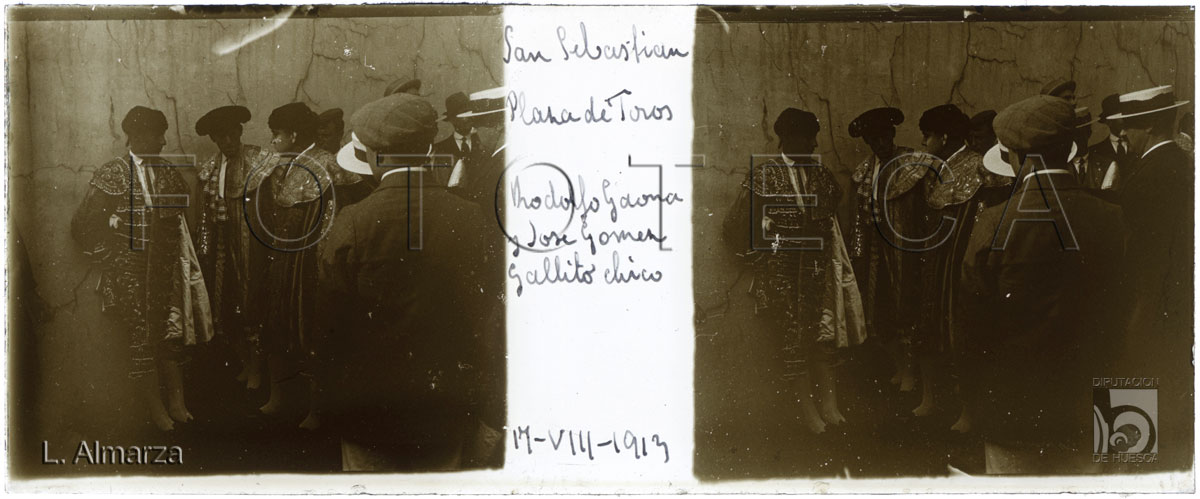 San Sebastian
Plaza de Toros
Rhodolfo Gaona
y Jose Gomez
Gallito chico
17-VIII-1913
FOTOTECA
L. Almarza
DIPUTACION
DE HUESCA